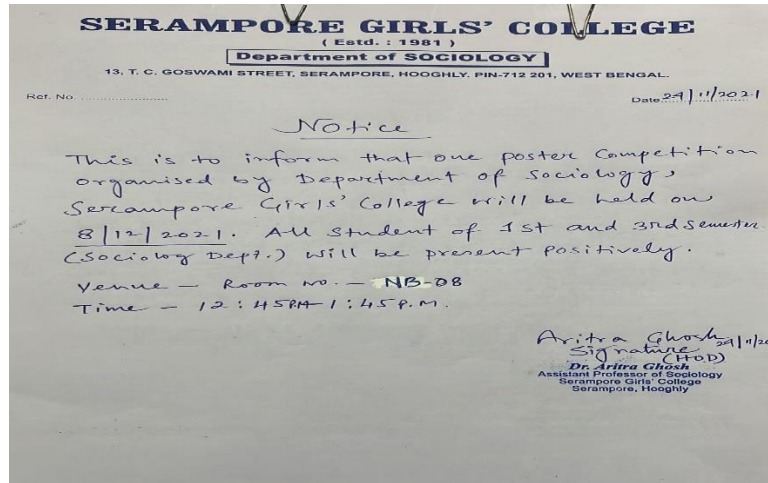 SERAMPORE GIRLS' COLLEGE
( Estd. : 1981 )
Department of SOCIOLOGY
13, T. C. GOSWAMI STREET, SERAMPORE, HOOGHLY. PIN-712 201, WEST BENGAL.
Ref. No. ........................ Date 29/11/2021
Notice
This is to inform that one poster Competition
organised by Department of Sociology,
Serampore Girls' College will be held on
8/12/2021. All Student of 1st and 3rd Semester
(Sociolog Dept.) will be present positively.
Venue – Room no. – NB-08
Time – 12:45PM-1:45P.M.
Aritra Ghosh
Signature 29/11/20
(HOD)
Dr. Aritra Ghosh
Assistant Professor of Sociology
Serampore Girls' College
Serampore, Hooghly